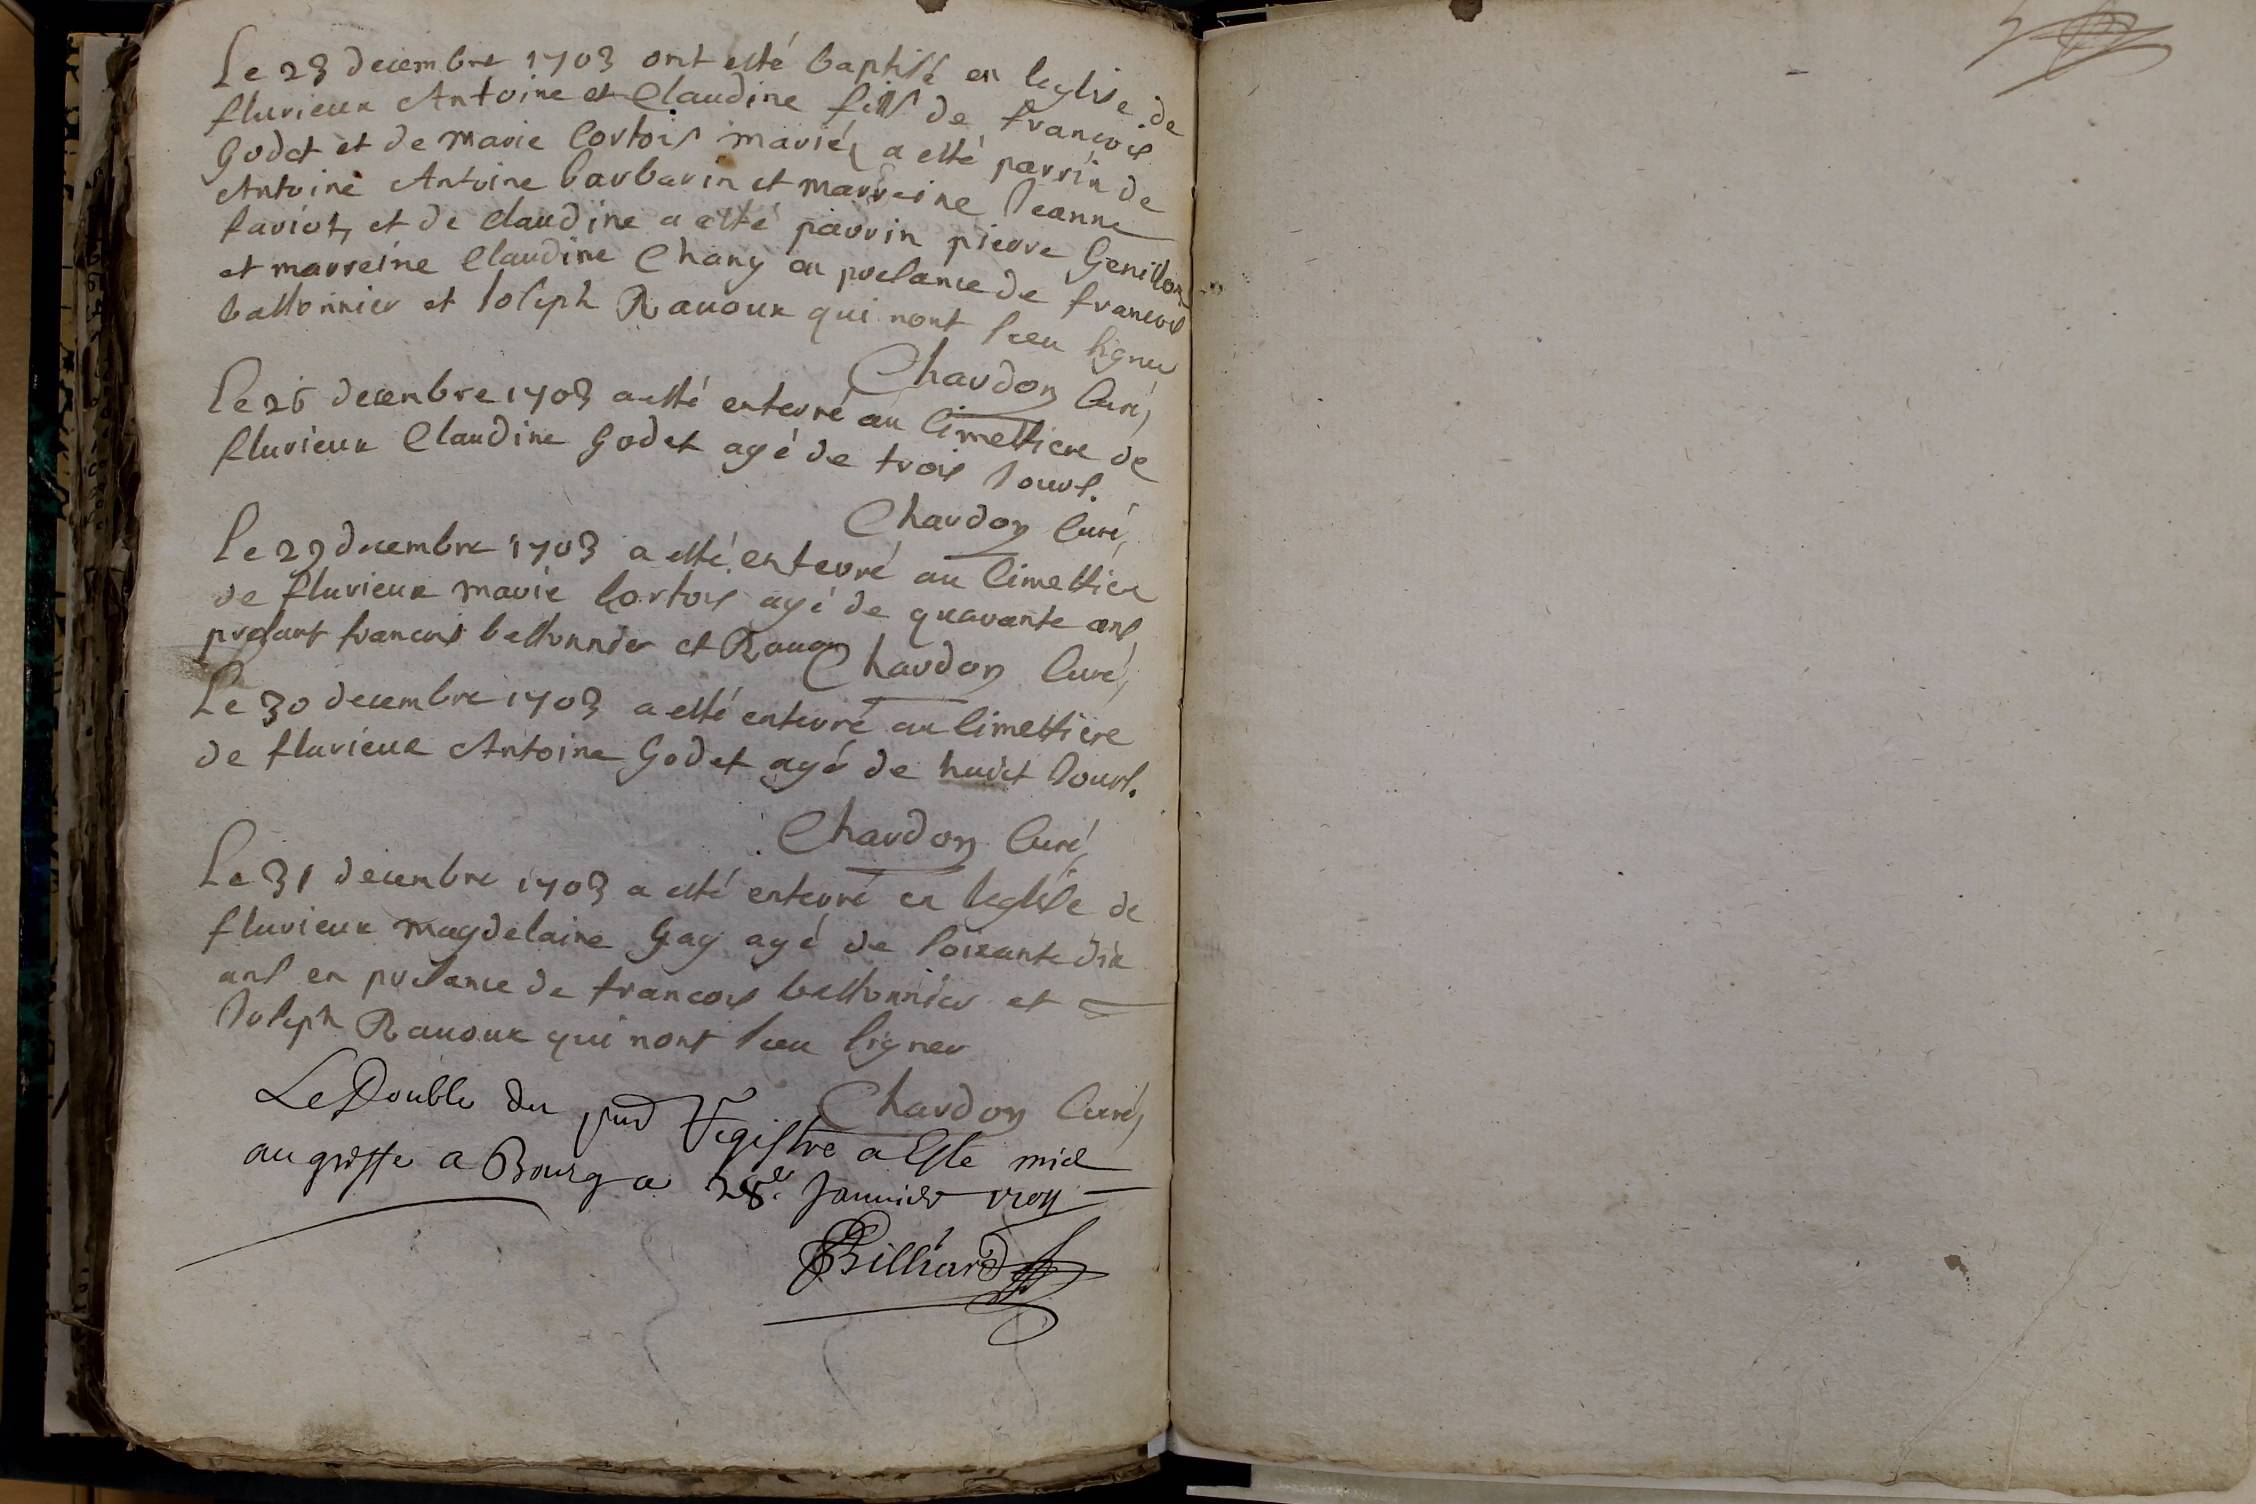 Le 23 decembre 1703 ont esté baptisé en leglise de
flurieux Antoine et Claudine fills de francois
Godet et de marie Cortois mariés a esté parrin de
Antoine Antoine barbarin et marreine Jeanne
faviot, et de claudine a esté parrin pierre Genillon
et marreine Claudine Chany en presance de francois
bastonnier et Joseph Ravoux qui nont sceu signer
Chardon Curé,
Le 26 decenbre 1703 a esté enterré au Cimettiere de
flurieux Claudine Godet agé de trois Jours.
Chardon Curé,
Le 29 decembre 1703 a esté enterré au Cimettiere
de flurieux marie Cortois agé de quarante ans
presant francois bastonnier et Ravoux
Chardon Curé,
Le 30 decembre 1703 a esté enterré au Cimettiere
de flurieux Antoine Godet agé de huict Jours.
Chardon Curé,
Le 31 decenbre 1703 a esté enterré en leglise de
flurieux magdelaine Gay agé de soixante dix
ans en presance de francois bastonnier et
Joseph Ravoux qui nont sceu signer
Chardon Curé,
Le Double du pnt Registre a Este mis
au greffe a Bourg a 28e Janvier 1704
Billiard